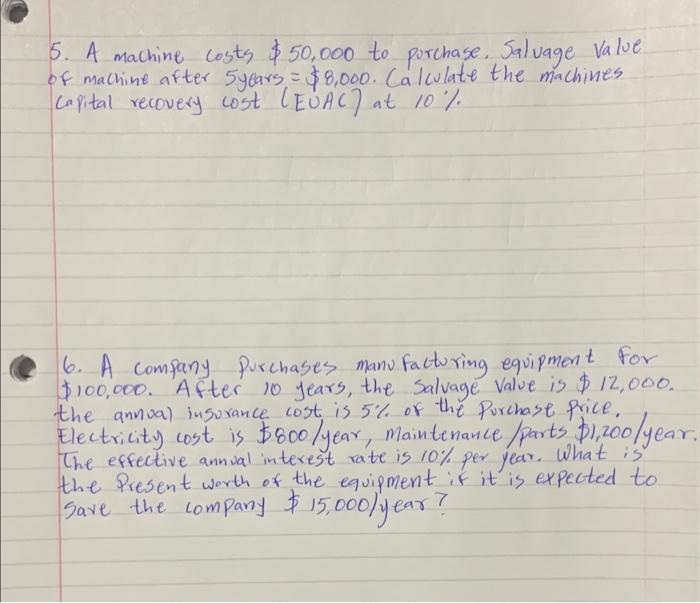 5. A machine costs $50,000 to purchase. Salvage value
of machine after 5years = $8,000. Calculate the machines
Capital recovery cost (EUAC) at 10%
6. A company purchases manufacturing equipment for
$100,000. After 10 years, the salvage value is $12,000.
the annual insurance cost is 5% of the Purchase price.
Electricity cost is $800/year, Maintenance/parts $1,200/year.
The effective annual interest rate is 10% per year. What is
the Present worth of the equipment if it is expected to
Save the company $15,000/year?